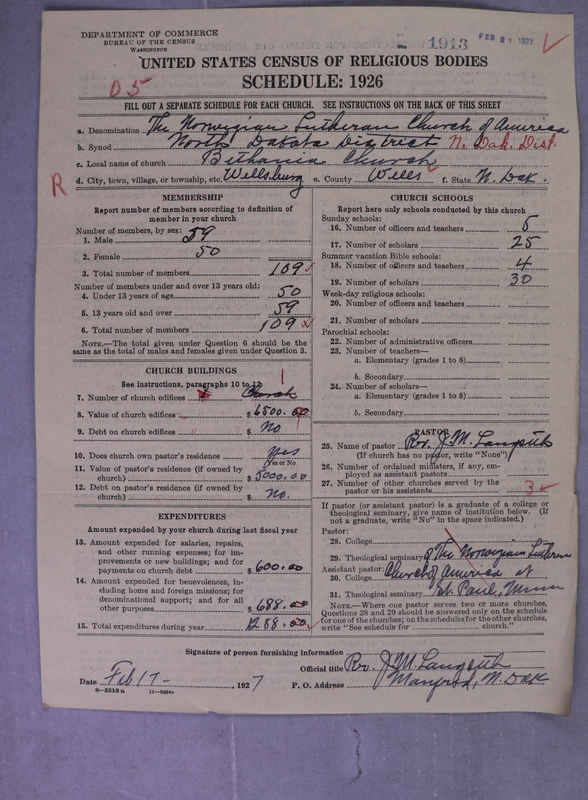 DEPARTMENT OF COMMERCE
BUREAU OF THE CENSUS
WASHINGTON
1913 FEB 21 1927
UNITED STATES CENSUS OF RELIGIOUS BODIES
D5
SCHEDULE: 1926
FILL OUT A SEPARATE SCHEDULE FOR EACH CHURCH. SEE INSTRUCTIONS ON THE BACK OF THIS SHEET
a. Denomination The Norwegian Lutheran Church of America
b. Synod North Dakota District N. Dak. Dist.
c. Local name of church Bethania Church
d. City, town, village, or township, etc. Wellsburg e. County Wells f. State N. Dak.
R
MEMBERSHIP
Report number of members according to definition of
member in your church
Number of members, by sex:
1. Male 59
2. Female 50
3. Total number of members 109
Number of members under and over 13 years old:
4. Under 13 years of age 50
5. 13 years old and over 59
6. Total number of members 109
NOTE.—The total given under Question 6 should be the
same as the total of males and females given under Question 3.
CHURCH BUILDINGS
See instructions, paragraphs 10 to 12
1
7. Number of church edifices Church
8. Value of church edifices $ 6500.00
9. Debt on church edifices $ No
10. Does church own pastor's residence yes
(Yes or No)
11. Value of pastor's residence (if owned by
church) $ 5000.00
12. Debt on pastor's residence (if owned by
church) $ No.
EXPENDITURES
Amount expended by your church during last fiscal year
13. Amount expended for salaries, repairs,
and other running expenses; for im-
provements or new buildings; and for
payments on church debt $ 600.00
14. Amount expended for benevolences, in-
cluding home and foreign missions; for
denominational support; and for all
other purposes $ 688.00
15. Total expenditures during year $ 1288.00
CHURCH SCHOOLS
Report here only schools conducted by this church
Sunday schools:
16. Number of officers and teachers 5
17. Number of scholars 25
Summer vacation Bible schools:
18. Number of officers and teachers 4
19. Number of scholars 30
Week-day religious schools:
20. Number of officers and teachers
21. Number of scholars
Parochial schools:
22. Number of administrative officers
23. Number of teachers—
a. Elementary (grades 1 to 8)
b. Secondary
24. Number of scholars—
a. Elementary (grades 1 to 8)
b. Secondary
PASTOR
25. Name of pastor Rev. J. M.
(If church has no pastor, write "None")
26. Number of ordained ministers, if any, em-
ployed as assistant pastors
27. Number of other churches served by the
pastor or his assistants 3
If pastor (or assistant pastor) is a graduate of a college or
theological seminary, give name of institution below. (If
not a graduate, write "No" in the space indicated.)
Pastor:
28. College
29. Theological seminary of The Norwegian Lutheran
Assistant pastor: Church of America at
30. College
31. Theological seminary St. Paul, Minn
NOTE.—Where one pastor serves two or more churches,
Questions 28 and 29 should be answered only on the schedule
for one of the churches; on the schedules for the other churches,
write "See schedule for church."
Signature of person furnishing information
Official title Rev. J. M.
Date Feb 17 - , 1927 P. O. Address Manfred, N. Dak
8—5518a